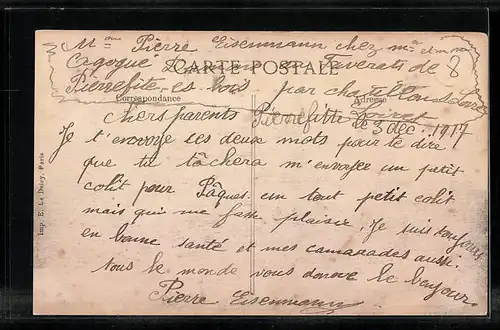 Mon Pierre Eisenmann chez ma et mon
Cagogué en Taverats de 8
CARTE POSTALE
Pierrefite es bois par chatillon s Loire
Correspondance
Adresse
Loiret
chers parents Pierrefitte le 3 déc. 1917
Je t'envoye ces deux mots pour te dire
que tu tâchera m'envoyer un petit
colit pour Pâques un tout petit colit
mais qui me fasse plaisir. Je suis toujours
en bonne santé et mes camarades aussi.
tous le monde vous donne le bonjour.
Pierre Eisenmann
Imp. E. Le Deley, Paris